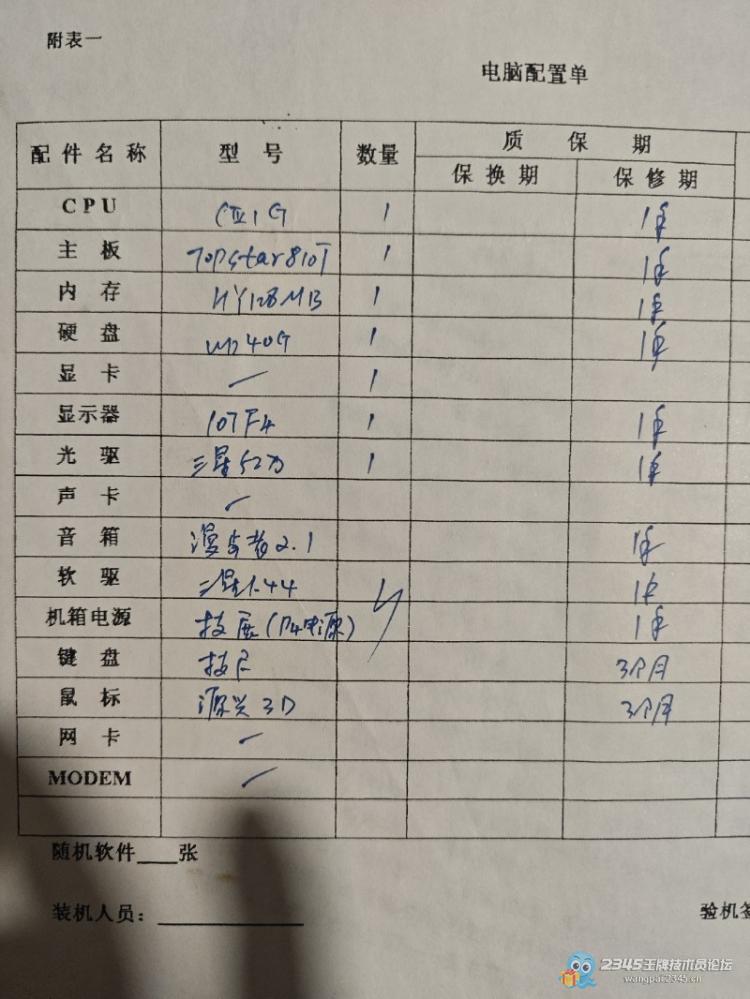 附表一
电脑配置单
配件名称 型号 数量 质保期
保换期 保修期
CPU CIII1G 1 1年
主板 TOPstar810T 1 1年
内存 HY128MB 1 1年
硬盘 40G 1 1年
显卡 — 1
显示器 107F4 1 1年
光驱 三星52 1 1年
声卡
音箱 漫步者2.1 1年
软驱 三星1.44 1年
机箱电源 技展(P4电源) 1年
键盘 技展 3个月
鼠标 源兴3D 3个月
网卡 —
MODEM —
随机软件___张
装机人员：
验机签
2345王牌技术员论坛
wangpai2345.cn